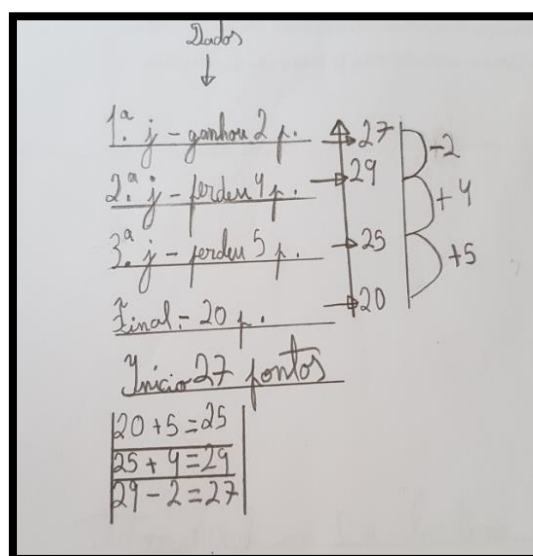 Dados
1ª j - ganhou 2 p. 27
29 -2
2ª j - perdeu 4 p. +4
3ª j - perdeu 5 p. 25
+5
Final - 20 p. 20
Início 27 pontos
20 + 5 = 25
25 + 4 = 29
29 - 2 = 27